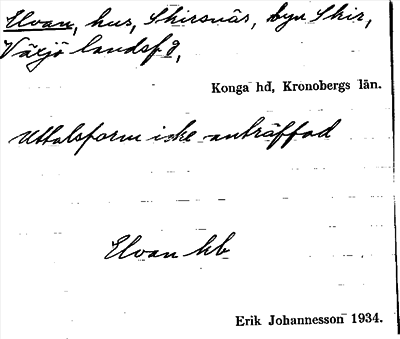 Elvan, hus, Skirsnäs, byn Skir,
Växjö landsf 9,
Konga hd, Kronobergs län.
Uttalsform icke anträffad
Elvan hb
Erik Johannesson 1934.